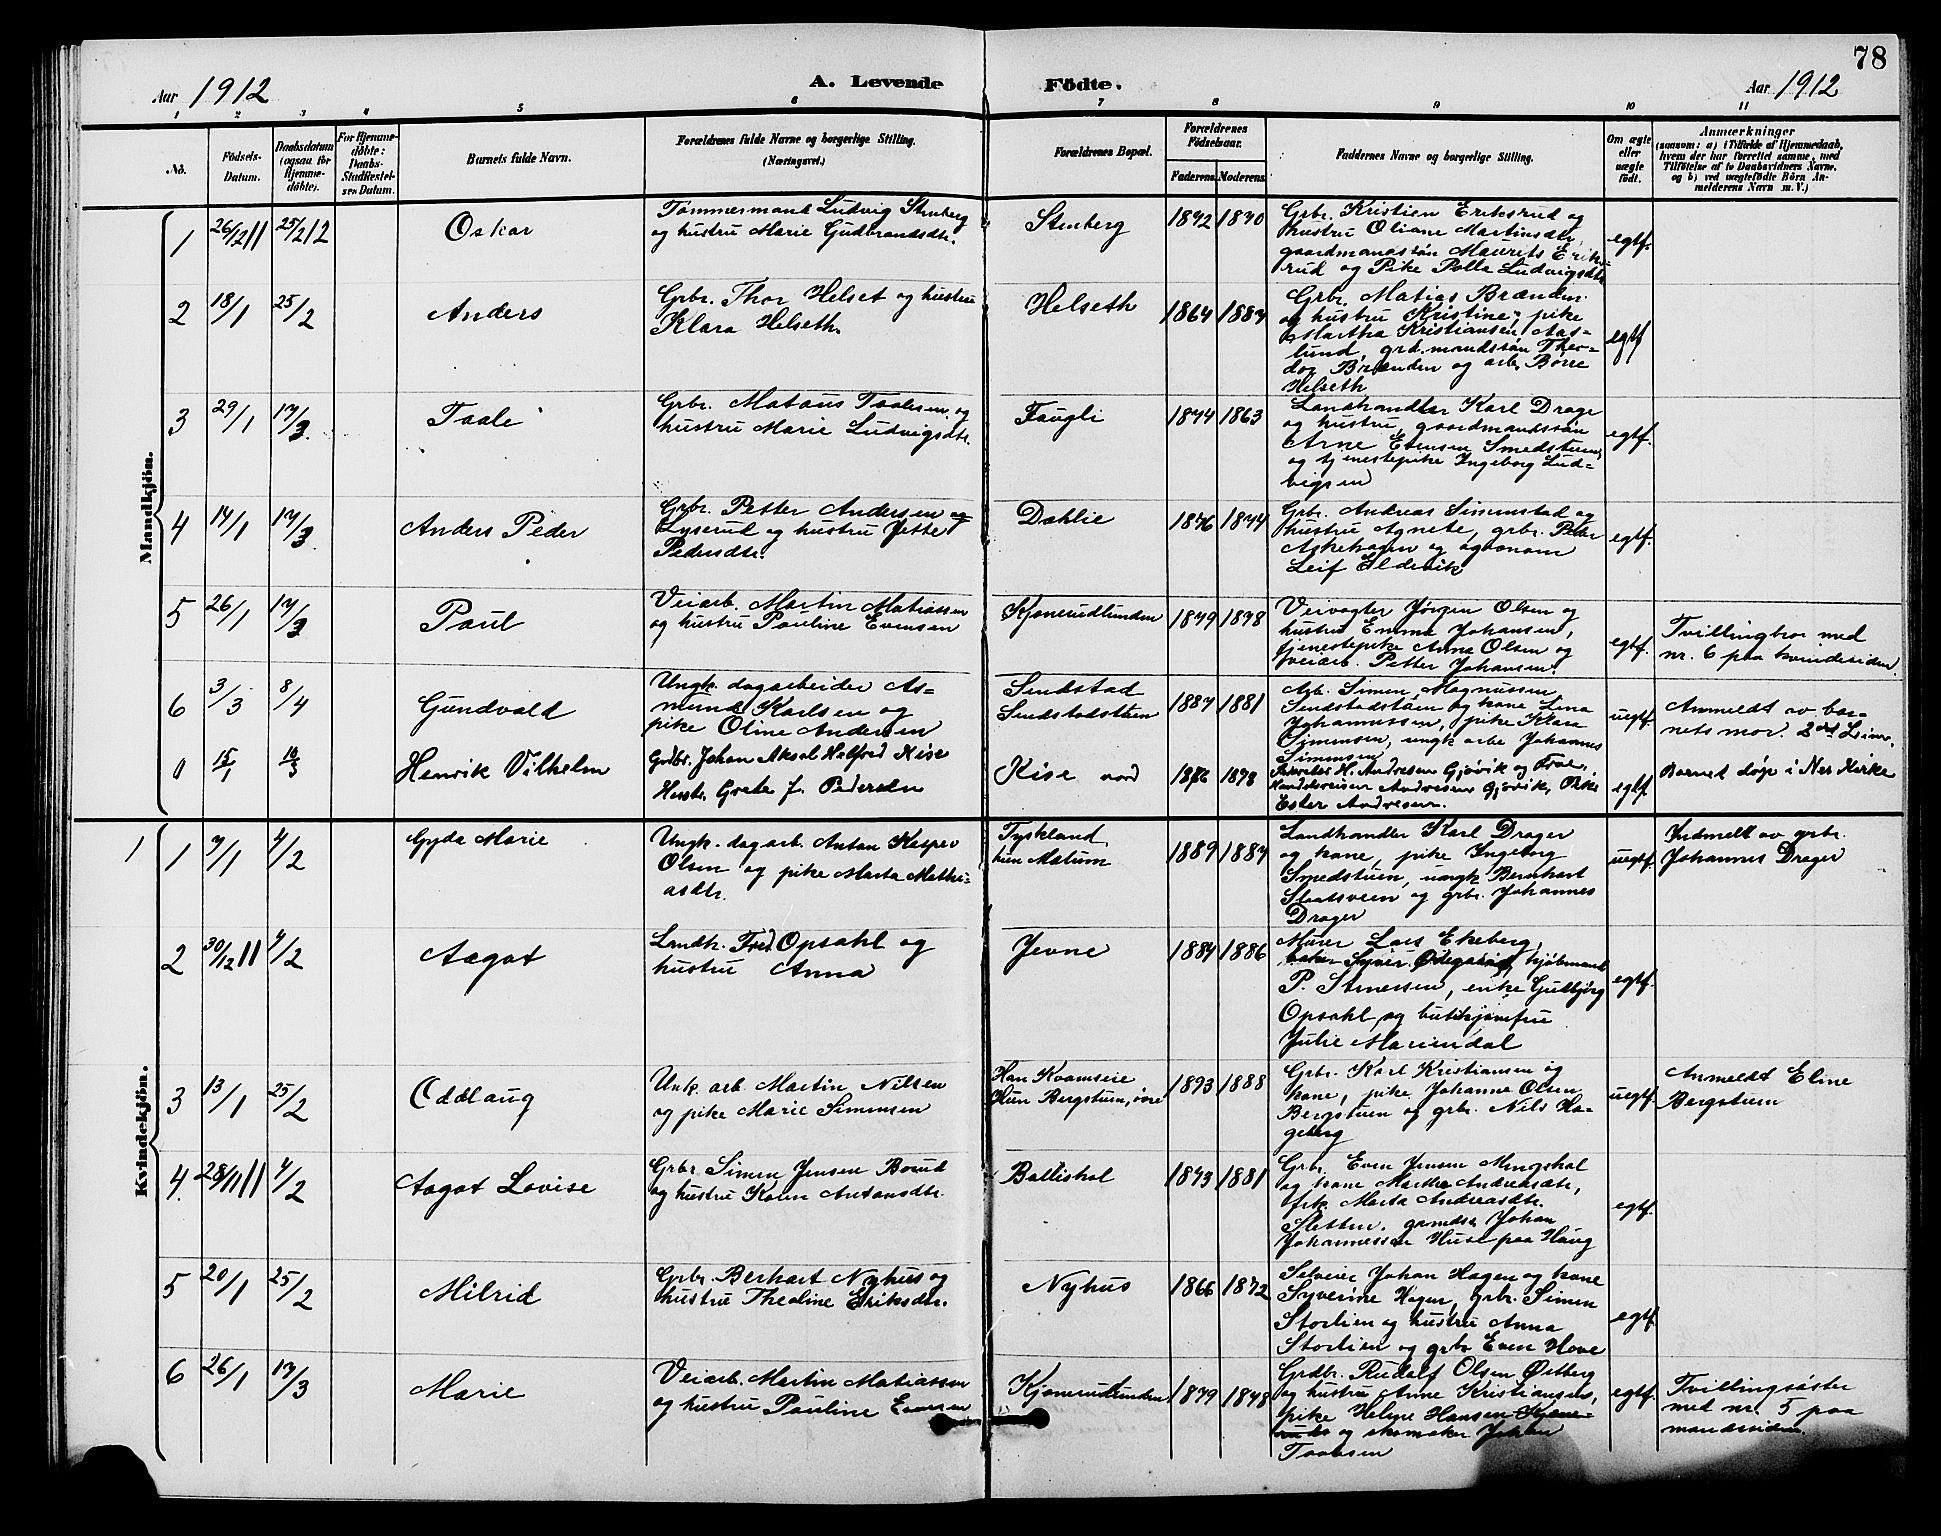 78
Aar 1912
A. Levende Födte.
Aar 1912
1 2 3 4 5 6 7 8 9 10 11
No.
Födsels-Datum.
Daabsdatum (ogsaa for Hjemmedöbte).
For Hjemmedöbte: Daabs-Stadfæstelses Datum.
Barnets fulde Navn.
Forældrenes fulde Navne og borgerlige Stilling.
(Næringsvei.)
Forældrenes Bopæl.
Forældrenes Födselsaar.
Faderens. Moderens.
Faddernes Navne og borgerlige Stilling.
Om ægte eller uægte födt.
Anmærkninger
(saasom: a) i Tilfælde af Hjemmedaab,
hvem der har forrettet samme, med
Tilföielse af to Daabsvidners Navne,
og b) ved uægtefödte Börn Anmelderens Navn m. V.)
Mandkjön.
1 26/12 11 25/2 12 Oskar
Tømmermand Ludvig Stenberg
og hustru Marie Gudbrandsdtr.
Stenberg 1872 1870
Grbr. Kristien Eriksrud og
hustru Oliane Martinsdtr,
gaardmandssøn Maurits Eriks-
rud og Pike Polla Ludvigsdtr
egtf.
2 18/1 25/2 Anders
Grbr. Thor Helset og hustru
Klara Helseth.
Helseth 1864 1887
Grbr. Matias Brænden
og hustru Kristine, pike
Martha Kristiansen Aas-
lund, grd.mandssøn Theo-
dor Brænden og arb. Børre
Helseth
egtf
3 29/1 17/3 Taale
Grbr. Mataus Taalesen og
hustru Marie Ludvigsdtr.
Faugli 1874 1863
Landhandler Karl Drager
og hustru, gaardmandssøn
Arne Evensen Smedstuen,
og tjenestepike Ingeborg Lud-
vigsen
egtf.
4 14/1 17/3 Anders Peder
Grbr. Petter Andersen
Lyserud og hustru Jette
Pedersdtr.
Dahlie 1876 1874
Grbr. Andreas Simenstad og
hustru Agnete, grbr. Peter
Askehagen og agronom
Leif Eldevik
egtf.
5 26/1 17/3 Paul
Veiarb. Martin Matiassen
og hustru Pauline Evensen
Kjonerudlunden 1879 1878
Veivogter Jørgen Olsen og
hustru Emma Johansen,
tjenestepike Anna Olsen og
veiarb. Petter Johansen.
egtf.
Tvillingbror med
nr. 6 paa kvindesiden
6 3/3 8/4 Gundvald
Ungk. dagarbeider As-
mund Karlsen og
pike Oline Andersen
Sendstad
Sendstadstuen 1887 1881
Arb. Simen Magnussen
Sendstadstuen og kone Lina
Johannessen, pike Klara
Simensen, ungk. arb. Johannes
Simensen
uegtf.
Anmeldt av bar-
nets mor.
15/1 10/3 Henrik Vilhelm
Grdbr. Johan Aksel Halfred Kise
Hustr. Grete J. Pedersen
Kise nord 1876 1878
H. Andresen Gjøvik og Frue,
Andresen Gjøvik, Pike
Ester Andresen.
egtf.
Barnet døpt i Nes Kirke
Kvindekjön.
1 1 7/1 4/2 Gyda Marie
Ungk. dagarb. Anton Kasper
Olsen og pike Marta Mathi-
asdtr.
Tyskland
hun Matum 1889 1887
Landhandler Karl Drager
og kone, pike Ingeborg
Smedstuen, ungk. Bernhart
Slaatsveen og grbr. Johannes
Drager
uegtf.
Indmeldt av grbr.
Johannes Drager
2 30/12 11 4/2 Aagot
Landh. Fred. Opsahl og
hustru Anna
Jevne 1884 1886
Murer Lars Ekeberg,
baker Syver Ødegaard, kjøbmand
P. Stenersen, enke Gulbjørg
Opsahl og butikjomfru
Julie Mariendal
egtf.
3 13/1 25/2 Oddlaug
Unk. arb. Martin Nilsen
og pike Marie Simensen
Han Kvamseie
Hun Bergstuen, øvre 1893 1888
Grbr. Karl Kristiansen og
kone, pike Johanne Olsen
Bergstuen og grbr. Nils Ha-
geberg
uegtf.
Anmeldt Eline
Bergstuen
4. 28/11 11 4/2 Aagot Lovise
Grbr. Simen Jensen Borud
og hustru Karen Antonsdtr.
Ballishol 1873 1881
Grbr. Even Jensen Mengshol
og kone Marthe Andreasdtr,
pike Marta Andreasdtr.
Sletten, grmds. Johan
Johannessen Huse paa Haug
egtf.
5 20/1 25/2 Milrid
Grbr. Berhart Nyhus og
hustru Theoline Eriksdtr.
Nyhus 1866 1872
Selveier Johan Hagen og kone
Syverine Hagen, grbr. Simen
Storlien og hustru Anna
Storlien og grbr Even Hove
egtf.
6 26/1 17/3 Marie
Veiarb. Martin Matiassen
og hustru Pauline Evensen
Kjonerudlunden 1879 1878
Grdbr. Rudolf Olsen Østberg
og hustru Anne Kristiansen,
pike Helene Hansen Kjone-
rud og skomaker Johan
Taalesen
egtf.
Tvillingsøster
med nr. 5 paa
mandssiden.